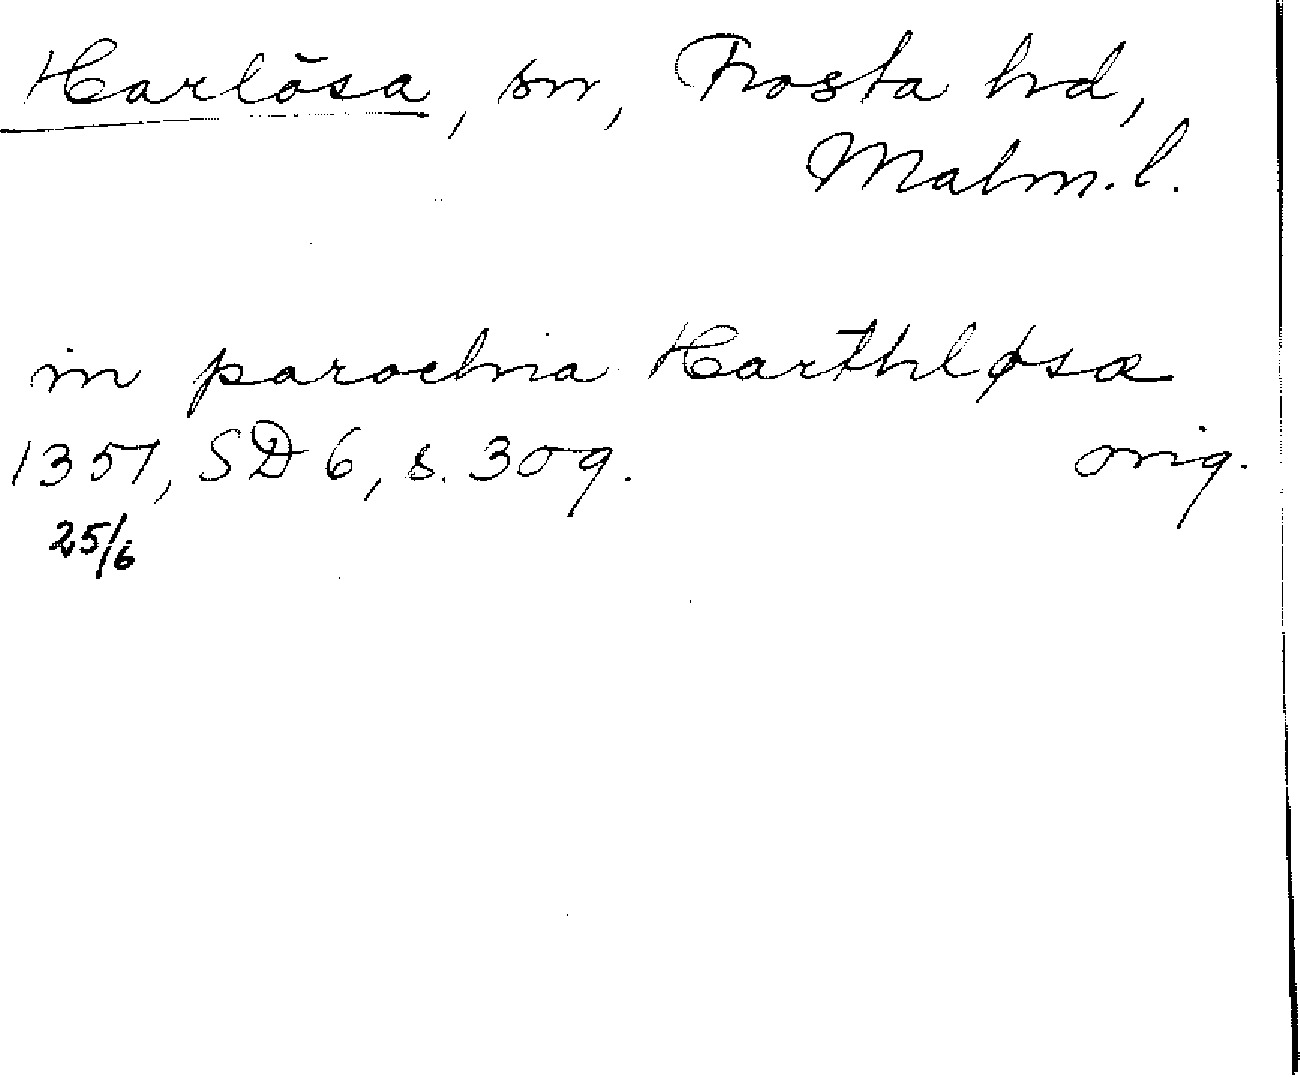 Harlösa, sn, Frosta hd,
Malm.l.
in parochia Harthløsæ
1351, SD 6, s. 309. orig.
25/6